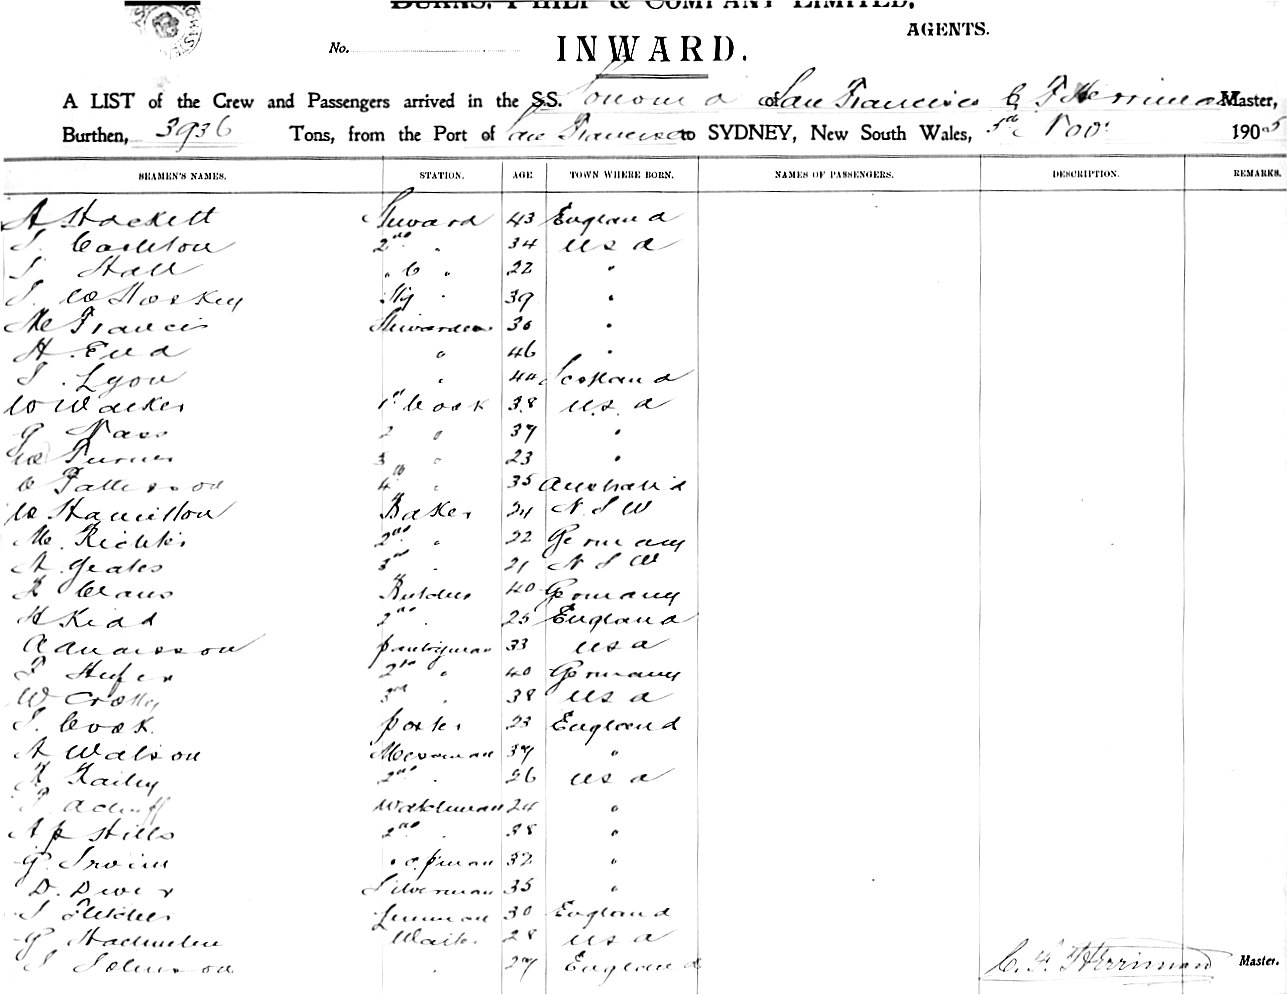 BURNS, PHILP & COMPANY LIMITED,
AGENTS.
No.
INWARD.
A LIST of the Crew and Passengers arrived in the S.S. Sonoma of San Francisco C F Herriman Master,
Burthen, 3936 Tons, from the Port of San Francisco to SYDNEY, New South Wales, 5th Nov. 1905
SEAMEN'S NAMES. STATION. AGE TOWN WHERE BORN. NAMES OF PASSENGERS. DESCRIPTION. REMARKS.
A Hackett Steward 43 England
2nd " 34 U S A
Hall " C " 22 "
39 "
M Francis Stewardess "
H. " 46 "
Lyon " 44 Scotland
W Walker 1st Cook 38 U.S. A
G Nass 2 " 37 "
W Turner 3 " 23 "
C Patterson 4th " 35 Australia
W Hamilton Baker 24 N. S W
M. Richter 2nd " 22 Germany
A. Yeates 3rd " 21 N S W
Claus Butcher 40 Germany
H Kidd 2nd " 25 England
A Anderson pantryman 33 U S A
2nd " 40 Germany
W Crosby 3rd " 38 U S A
J. Cook. porter 23 England
A Watson Messman 37 "
2nd " 26 U S A
Watchman 24 "
A P Hills 2nd " 38 "
G. Irwin 32 "
D. Silverman 35 "
Fletcher Linenman 30 England
G Waiter 28 U S A
J Johnson " 27 England
C. F. Herriman Master.